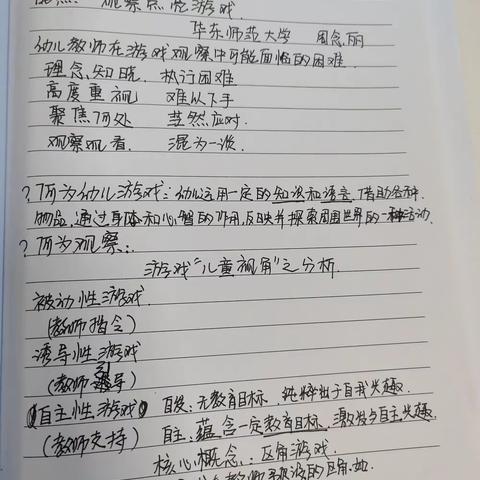 观察点亮游戏.
华东师范大学 周念丽
幼儿教师在游戏观察中可能面临的困难.
理念知晓, 执行困难
高度重视 难以下手
聚焦何处 茫然应对.
观察观看. 混为一谈.
?何为幼儿游戏:幼儿运用一定的知识和语言,借助各种
物品,通过身体和心智的作用,反映并探索周围世界的一种活动.
?何为观察:.
游戏"儿童视角"之分析.
被动性游戏.
(教师指令)
诱导性游戏
(教师引导)
①自主性游戏 自发:无教育目标.纯粹出于自我兴趣.
(教师支持) 自主:蕴含一定教育目标,激发与自主兴趣.
核心概念:区角游戏.
教师预设的区角,如